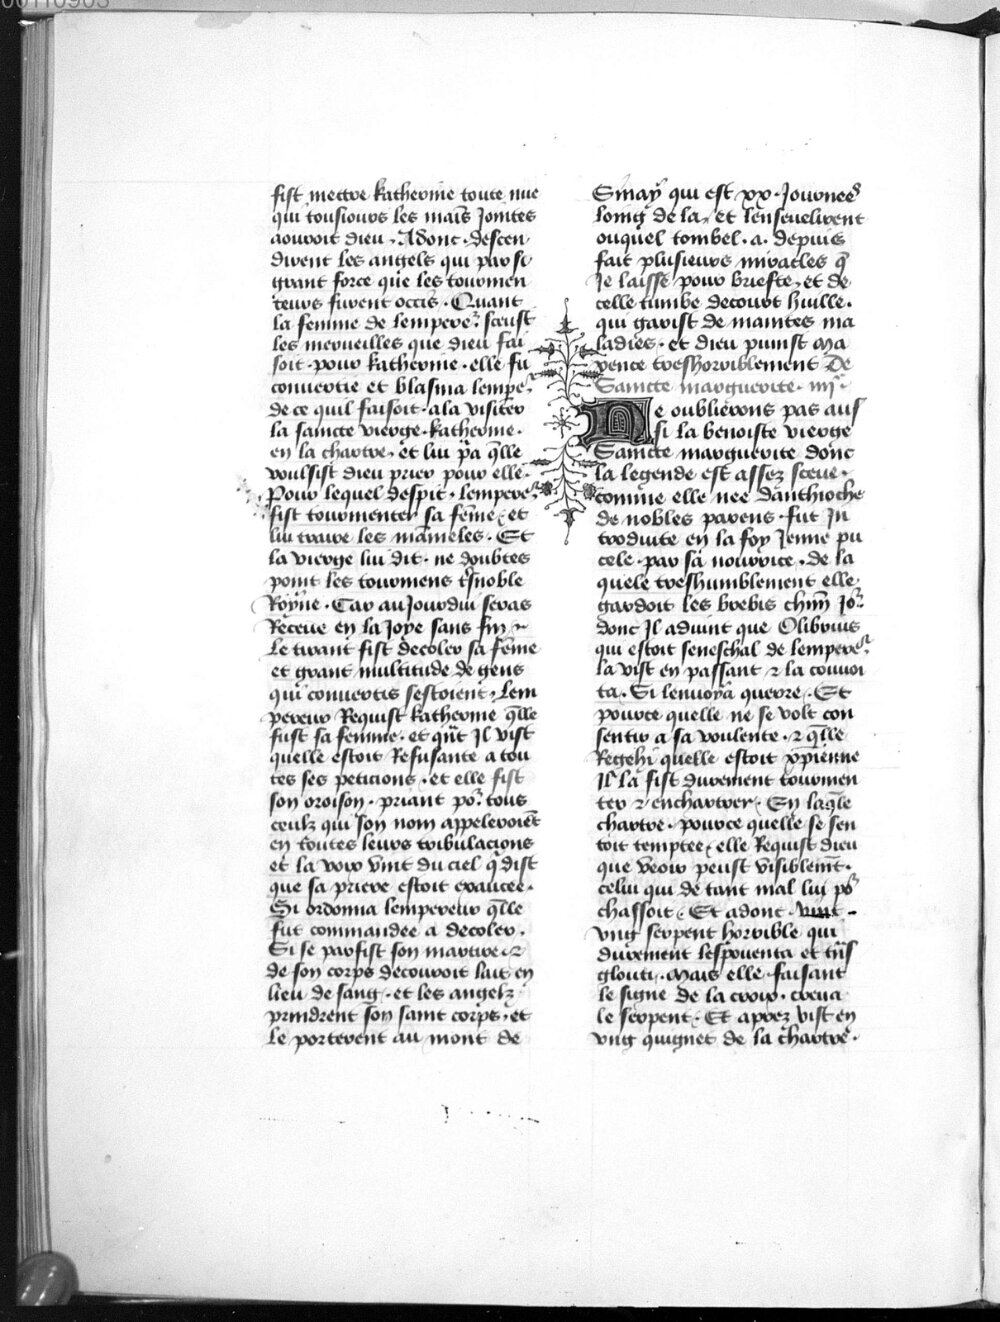 fist mettre katherine toute nue
qui tousiours les mains Jointes
aouroit dieu. Adonc. descen
dirent les angels qui par si
grant force que les tourmen
teurs furent occis. Quant
la femme de lempere2 sceust
les merueilles que dieu fai
soit. pour katherine. elle fu
conuertie et blasma lempe2
de ce quil faisoit. ala visiter
la saincte vierge. katherine.
en la chartre. et lui p̃a q̃lle
voulsist dieu prier pour elle.
Pour lequel despit. lempere2
fist tourmenter sa fẽme. et
lui traire les mãmeles. Et
la vierge lui dit. ne doubtes
point les tourmens tˢnoble
Roÿne. Car auJourdui seras
Receue en la Joye sans fin
Le tirant fist decoler sa fẽme
et grant multitude de gens
qui conuertis sestoient. Lem
pereur Requist katherine q̃lle
fust sa femme. et qũt Il vist
quelle estoit Refusante a tou
tes ses peticions. et elle fist
son oroison. priant po2 tous
ceulx qui son nom appeleroiẽt
en toutes leurs tribulacions
et la voix vint du ciel q̃ dist
que sa priere estoit exaucee.
Si ordonna lempereur q̃lle
fut commandee a decoler.
Si se parfist son martire. ⁊
de son corps decouroit lait en
lieu de sang. et les angelz
prindrent son saint corps. et
le porterent au mont de
Sinaÿ qui est xx. Journees
loing de la. et lenseuelirent
ouquel tombel. a. depuis
fait plusieurs miracles q̃
Je laisse pour briefte. et de
celle tumbe decourt huille.
qui garist de maintes ma
ladies. et dieu punist Ma
xence treshorriblement De
Saincte marguerite. iiij
Ne oublierons pas aus
si la benoiste vierge
Saincte marguerite donc
la legende est assez sceue.
comme elle nee danthioche
de nobles parens. fut In
troduite en la foy Jenne pu
cele. par sa nourrice. de la
quele treshumblement elle
gardoit les brebis chũn Jo2
donc Il aduint que Olibrius
qui estoit seneschal de lempere2
la vist en passant ⁊ la conuoi
ta. Si lenuoya querre. Et
pource quelle ne se volt con
sentir a sa voulente. ⁊ q̃lle
Regehi quelle estoit xp̃ienne
Il la fist durement tourmen
ter ⁊ enchartrer. En laq̃le
chartre. pource quelle se sen
toit temptee. elle Requist dieu
que veoir peust visiblemẽt.
celui qui de tant mal lui po2
chassoit. Et adonc. vint
vng serpent horrible qui
durement lespouenta et tñs
glouti. Mais elle faisant
le signe de la croix. creua
le serpent. Et aprez vist en
vng quignet de la chartre.